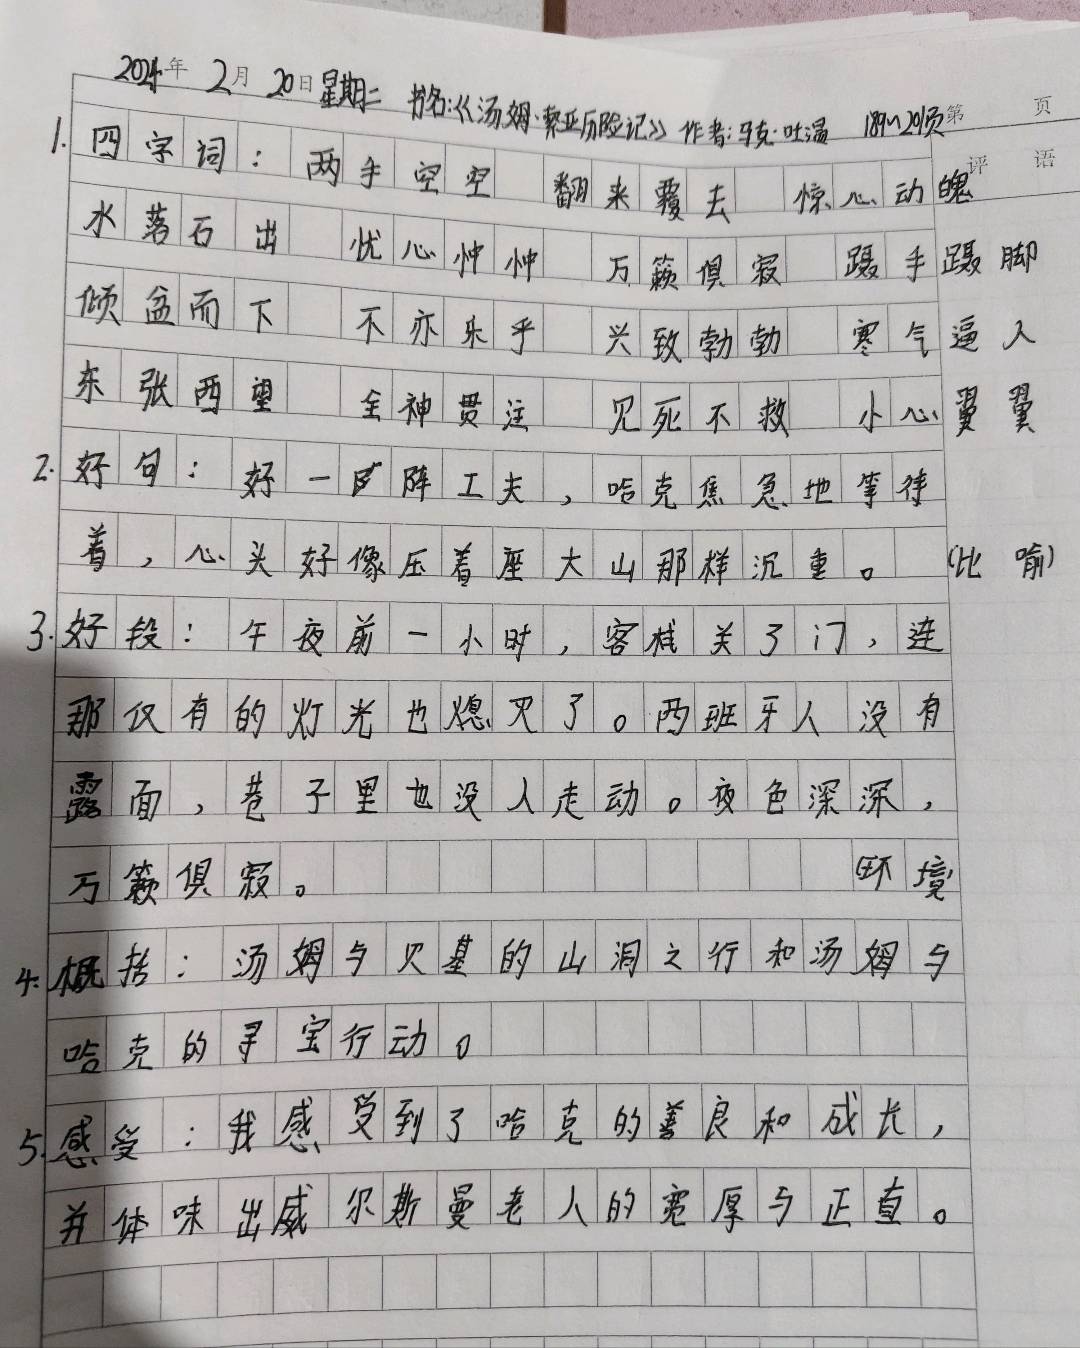 2024年 2月 20日 星期二 书名:《汤姆·索亚历险记》 作者:马克·吐温 189~201页 第 页
评 语
1. 四字词：两手空空 翻来覆去 惊心动魄
水落石出 忧心忡忡 万籁俱寂 蹑手蹑脚
倾盆而下 不亦乐乎 兴致勃勃 寒气逼人
东张西望 全神贯注 见死不救 小心翼翼
2. 好句：好一阵工夫，哈克焦急地等待
着，心头好像压着座大山那样沉重。 (比喻)
3. 好段：午夜前一小时，客栈关了门，连
那仅有的灯光也熄灭了。西班牙人没有
露面，巷子里也没人走动。夜色深深，
万籁俱寂。 环境
4. 概括：汤姆与贝基的山洞之行和汤姆与
哈克的寻宝行动。
5. 感受：我感受到了哈克的善良和成长，
并体味出威尔斯曼老人的宽厚与正直。